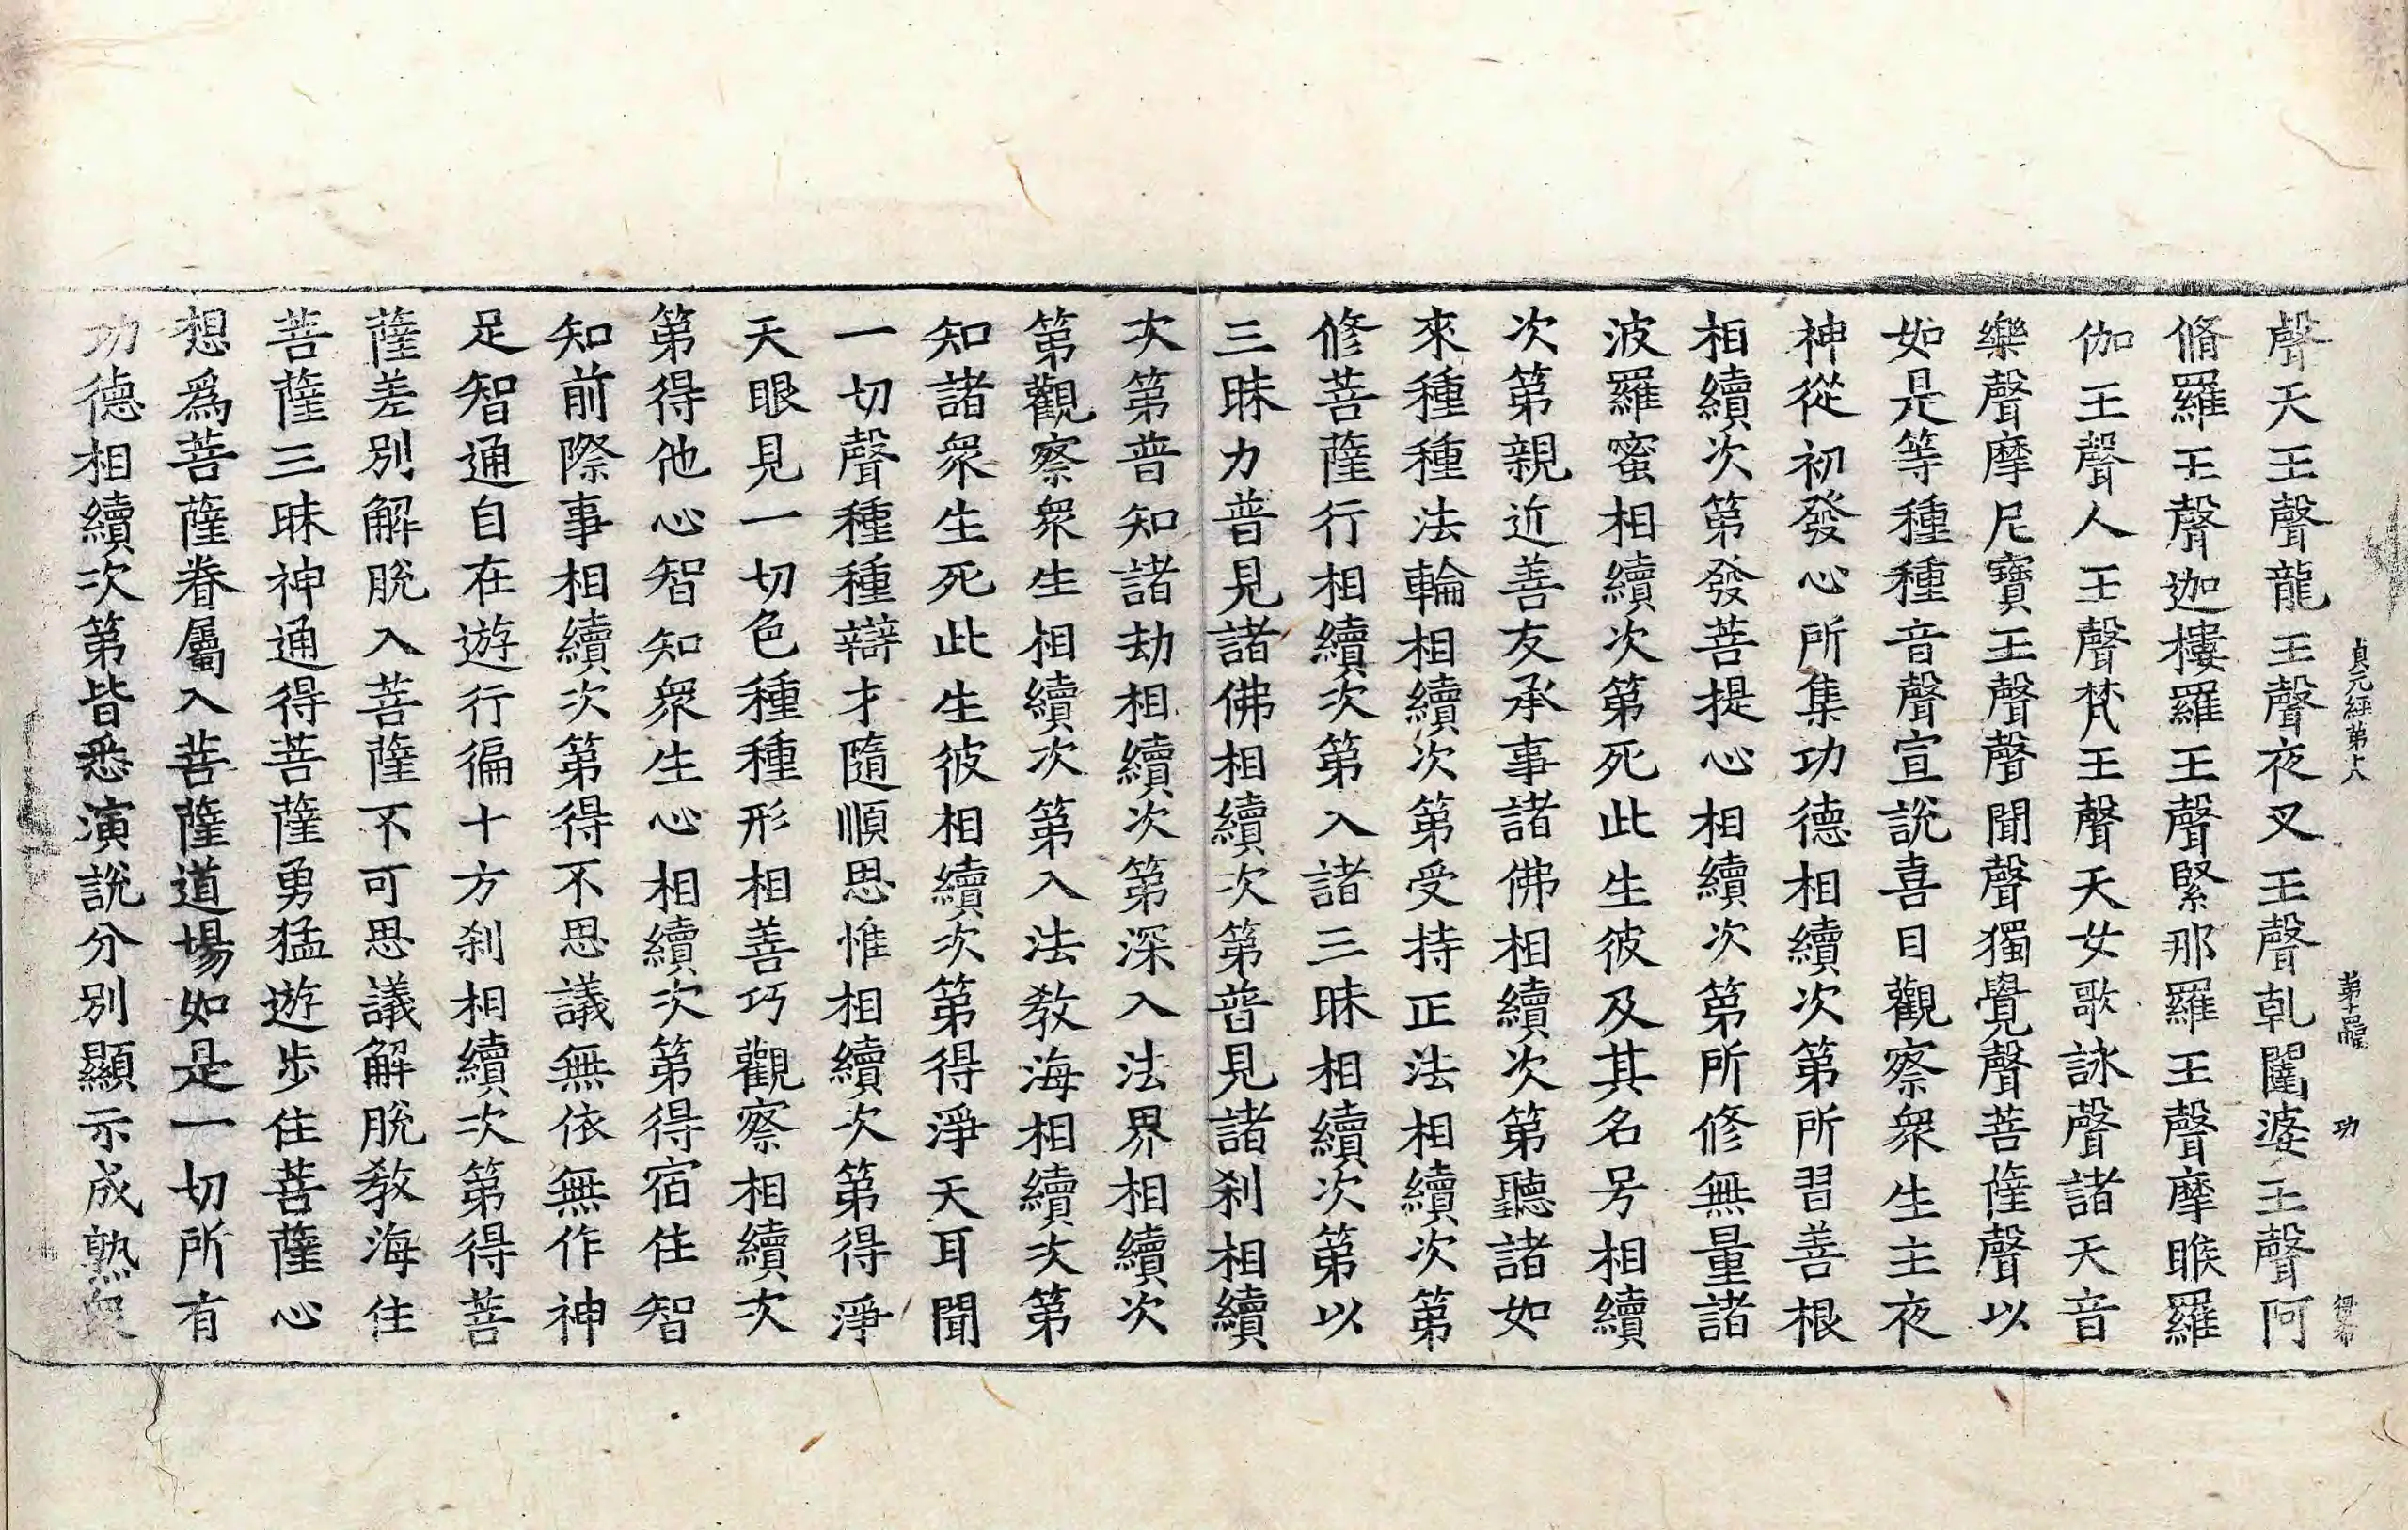 貞元經第十八 第十四張 功 得布
聲天王聲龍王聲夜叉王聲乹闥婆王聲阿
脩羅王聲迦樓羅王聲緊那羅王聲摩睺羅
伽王聲人王聲梵王聲天女歌詠聲諸天音
樂聲摩尼寶王聲聲聞聲獨覺聲菩薩聲以
如是等種種音聲宣說喜目觀察衆生主夜
神從初發心所集功德相續次第所習善根
相續次第發菩提心相續次第所修無量諸
波羅蜜相續次第死此生彼及其名号相續
次第親近善友承事諸佛相續次第聽諸如
來種種法輪相續次第受持正法相續次第
修菩薩行相續次第入諸三昧相續次第以
三昧力普見諸佛相續次第普見諸刹相續
次第普知諸劫相續次第深入法界相續次
第觀察衆生相續次第入法教海相續次第
知諸衆生死此生彼相續次第得淨天耳聞
一切聲種種辯才隨順思惟相續次第得淨
天眼見一切色種種形相善巧觀察相續次
第得他心智知衆生心相續次第得宿住智
知前際事相續次第得不思議無依無作神
足智通自在遊行徧十方刹相續次第得菩
薩差別解脫入菩薩不可思議解脫教海住
菩薩三昧神通得菩薩勇猛遊步住菩薩心
想爲菩薩眷屬入菩薩道場如是一切所有
功德相續次第皆悉演說分別顯示成熟衆